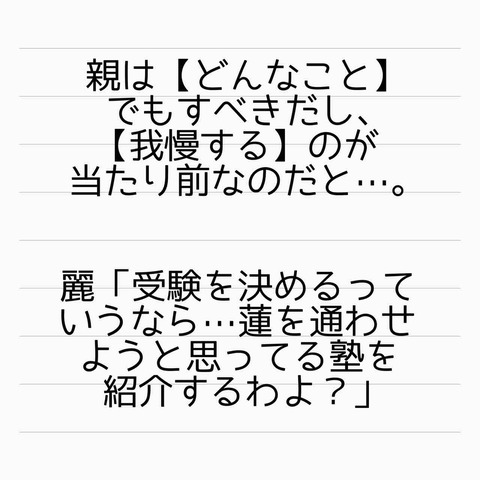 親は【どんなこと】
でもすべきだし、
【我慢する】のが
当たり前なのだと…。
麗「受験を決めるって
いうなら…蓮を通わせ
ようと思ってる塾を
紹介するわよ？」